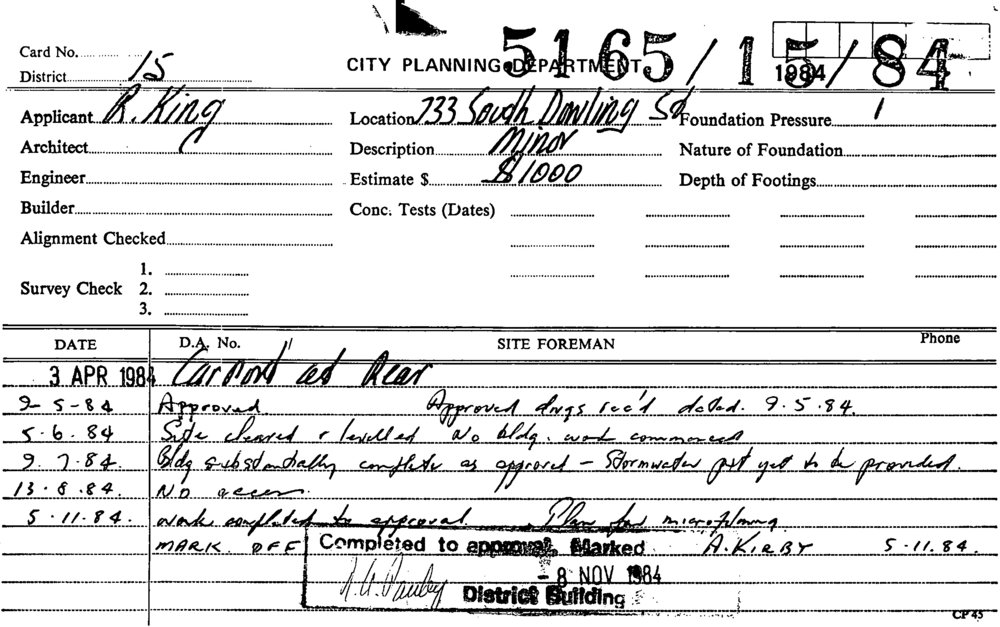 5165/15/84
Card No.
CITY PLANNING DEPARTMENT
1984
District 15
Applicant R. King
Location 733 South Dowling St
Foundation Pressure
Architect
Description Minor
Nature of Foundation
Engineer
Estimate $ $1000
Depth of Footings
Builder
Conc. Tests (Dates)
Alignment Checked
1.
Survey Check 2.
3.
DATE D.A. No. SITE FOREMAN Phone
3 APR 1984 Carport at Rear
9-5-84 Approved. Approved drgs rec'd dated. 9.5.84.
5.6.84 Site cleared & levelled No bldg. work commenced
9.7.84. Bldg substantially complete as approved - Stormwater pit yet to be provided.
13.8.84. No access.
5.11.84. work completed to approval. Plan for microfilming
MARK OFF A. KIRBY 5.11.84.
Completed to approval. Marked
- 8 NOV 1984
District Building
CP 45